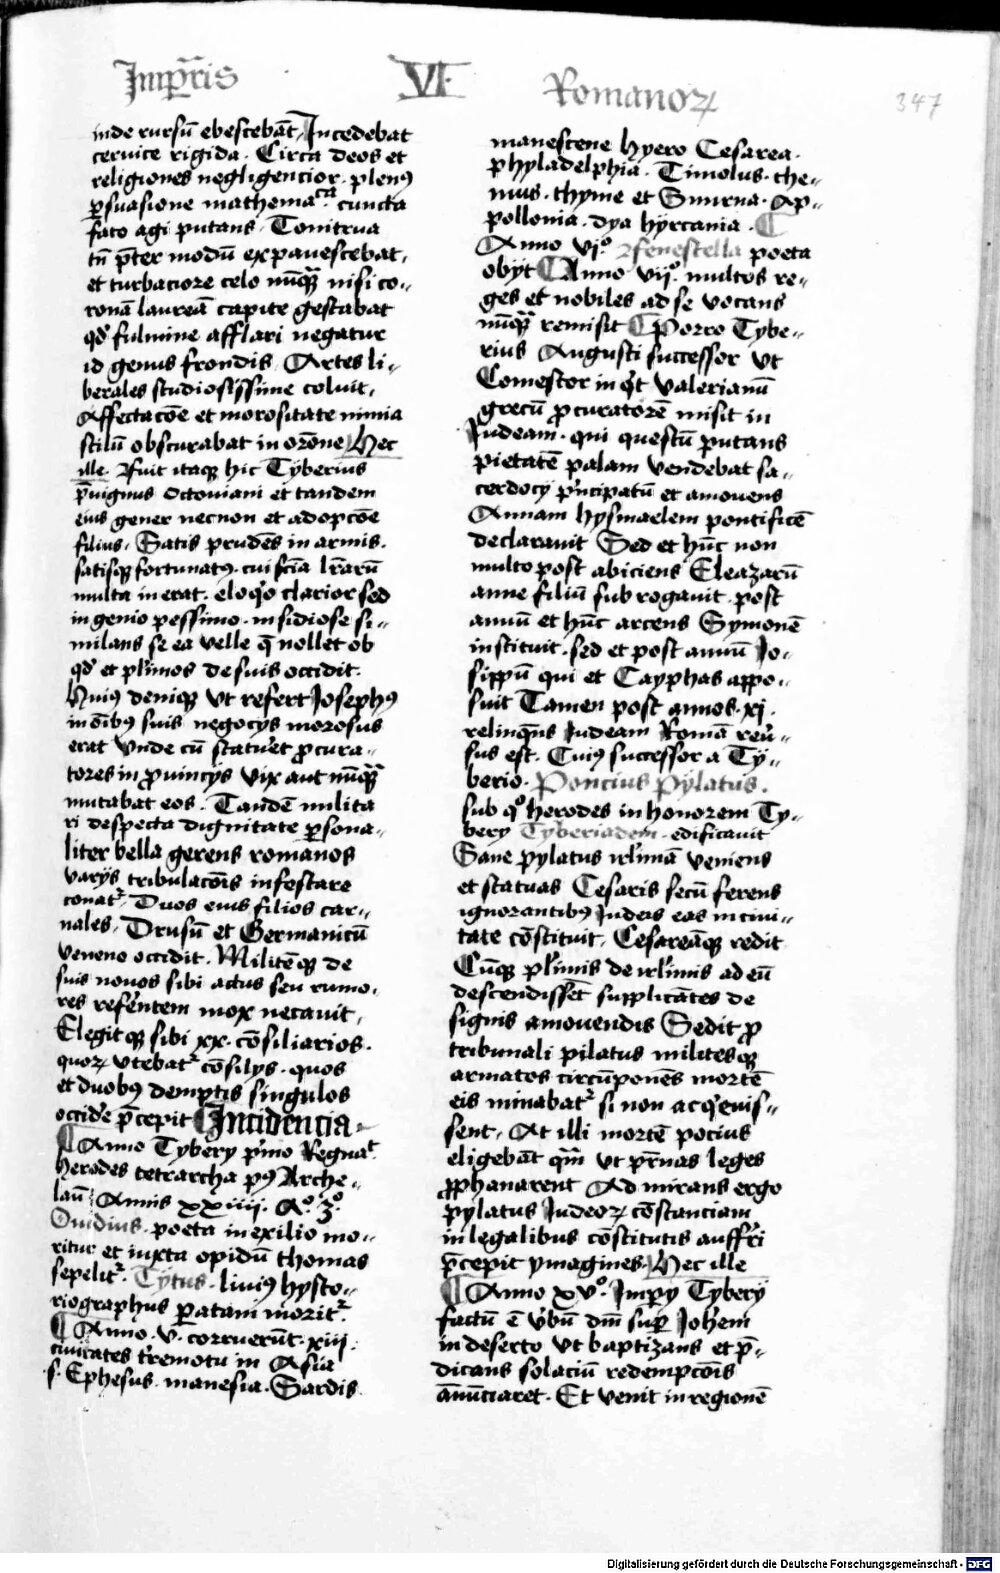 Imꝑar̄is VI Romanoꝝ 347
inde rursū ebescebāt. Incedebat
ceruice rigida. Circa deos et
religiones negligencior. plenꝰ
ꝑsuasione mathemaca. cuncta
fato agi putans. Tonitrua
tn̄ p̄ter modū expauescebat.
et turbaciore celo nūqᷓ nisi co-
ronā laureā capite gestabat
qd̕ fulmine afflari negatur
id genus frondis. Artes li-
berales studiosissime coluit.
Affectacōe et morositate nimia
stilū obscurabat in orōne Hec
ille. Fuit itaqꝫ hic Tyberius
p̄uignus Octouiani et tandem
eius gener necnon et adopcōe
filius. Satis prudēs in armis.
satisqꝫ fortunatꝰ. cui scīa lr̄arū
multa inerat. eloq̊o clarior sed
ingenio pessimo. insidiose si-
milans se ea velle q̄ nollet ob
qd̕ et pl̕imos de suis occidit.
Huiꝰ deniqꝫ vt refert Josephꝰ
in oībꝰ suis negocys morosus
erat vnde cū statu̕et ꝓcura-
tores in ꝓuincys vix aut nūqᷓ
mutabat eos. Tandē milita
ri despecta dignitate ꝑsona-
liter bella gerens romanos
varys tribulacōis infestare
conat᷑. Duos eius filios car-
nales. Drusū et Germanicū
veneno occidit. Militēqꝫ de
suis nouos sibi actus seu rumo-
res refe̕ntem mox necauit.
Elegitqꝫ sibi xx. cōsiliarios.
quoꝝ vtebat᷑ cōsilys. quos
et duobꝰ demptis singulos
occide̕ p̄cepit Incidencia
Anno Tybery p̕mo Regnat᷑
herodes tetrarcha pꝰ Arche-
laū Annis xxiiij. A° 3°
Ouidius poeta in exilio mo-
ritur et iuxta opidū thomas
sepelit᷑. Tytus. liuiꝰ hysto-
riographus ꝑatani morit᷑
Anno. v. corruerūt. xiij.
ciuitates t̕remotu in Asia
s. Ephesus. manesia. Sardis
manescene hyero Cesarea.
phyladelphia. Timolus. the-
mus. thyme et Smirna. Ap-
pollonia. dya hyrcania.
Anno vj° Fenestella poeta
obyt Anno vij° multos re-
ges et nobiles ad se vocans
nūqᷓ remisit Porro Tybe-
rius Augusti successor vt
Comestor inq̕t valerianū
grecū ꝓcuratorē misit in
Judeam. qui questū putans
pietatē palam vendebat sa-
cerdocy p̕ncipatū et amouens
Annam hysmaelem pontificē
declarauit Sed et hūc non
multo post abiciens Eleazarū
anne filiū subrogauit. post
annū et hūc arcens Symonē
instituit. sed et post annū Jo-
sippū qui et Cayphas appo-
suit Tamen post annos. xj.
relinquēs Judeam Romā reu̕-
sus est. Cuiꝰ successor a Ty-
berio. Poncius Pylatus.
sub q̊ herodes in honorem Ty-
bery Tyberiadem. edificauit
Sane pylatus irl̕imā veniens
et statuas Cesaris secū ferens
ignorantibꝰ Judeis eas in ciui-
tate cōstituit. Cesareāqꝫ redit
Cūqꝫ pl̕imis de irl̕imis ad eū
descendissēt supplicātes de
signis amouendis Sedit ꝓ
tribunali pilatus militesqꝫ
armatos circūponēs mortē
eis minabat᷑ si non acq̕euis-
sent. At illi mortē pocius
eligebāt qm̄ vt pr̄nas leges
ꝓphanarent Admirans ergo
pylatus Judeoꝝ cōstanciam
in legalibus cōstitutis auffr̕i
p̄cepit ymagines. Hec ille
Anno xv° Imꝑy Tybery
factū ē v̕bū dn̄i suꝑ Joh̕em
in deserto vt baptizans et p̄-
dicans solaciū redempcōis
ānūciaret. Et venit in regionē
Digitalisierung gefördert durch die Deutsche Forschungsgemeinschaft - DFG